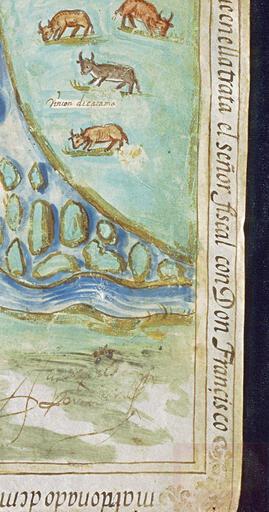 Rincon de çacamo
uenella trata el señor fiscal con Don Françisco
maldonado de m